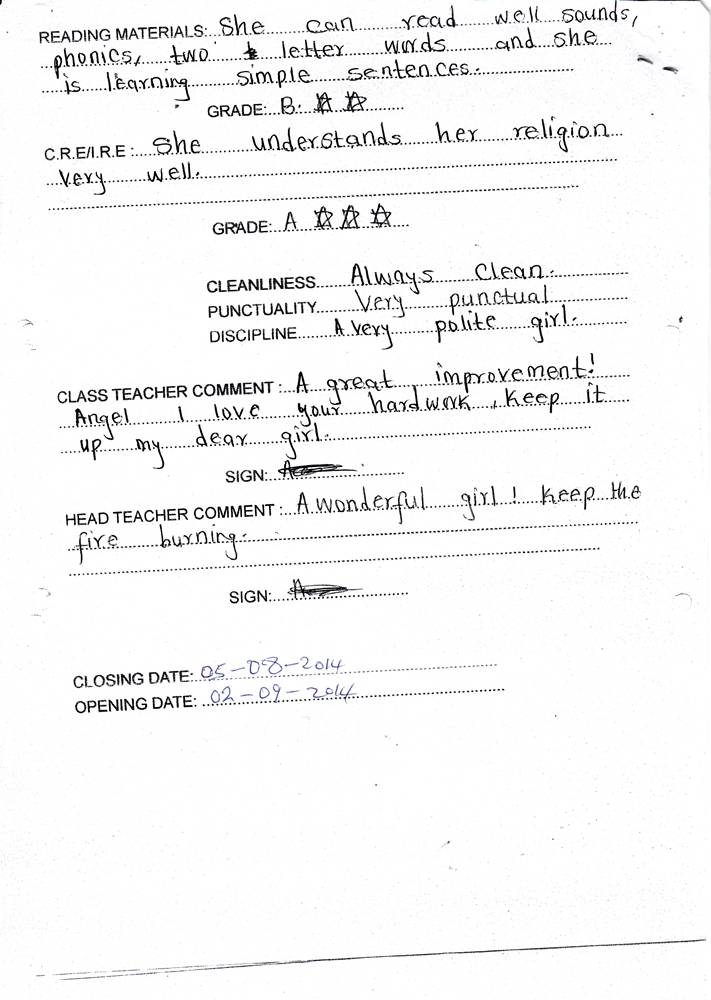 READING MATERIALS: She can read well sounds,
phonics, two letter words and she
is learning simple sentences.
GRADE: B. ☆ ☆
C.R.E/I.R.E : She understands her religion
Very well.
GRADE: A ☆ ☆ ☆
CLEANLINESS Always Clean.
PUNCTUALITY Very punctual
DISCIPLINE A very polite girl.
CLASS TEACHER COMMENT : A great improvement!
Angel I love your hardwork, Keep it
up my dear girl.
SIGN:
HEAD TEACHER COMMENT : A wonderful girl! Keep the
fire burning.
SIGN:
CLOSING DATE: 05-08-2014
OPENING DATE: 02-09-2014